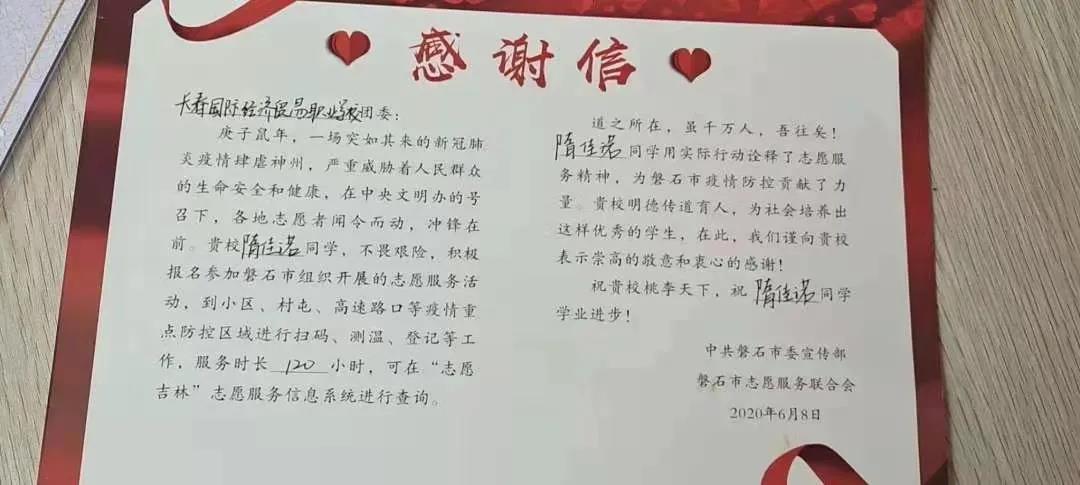 感谢信
长春国际经济贸易职业学校团委：
庚子鼠年，一场突如其来的新冠肺
炎疫情肆虐神州，严重威胁着人民群众
的生命安全和健康，在中央文明办的号
召下，各地志愿者闻令而动，冲锋在
前。贵校隋佳诺同学，不畏艰险，积极
报名参加磐石市组织开展的志愿服务活
动，到小区、村屯、高速路口等疫情重
点防控区域进行扫码、测温、登记等工
作，服务时长 120 小时，可在“志愿
吉林”志愿服务信息系统进行查询。
道之所在，虽千万人，吾往矣！
隋佳诺同学用实际行动诠释了志愿服
务精神，为磐石市疫情防控贡献了力
量。贵校明德传道育人，为社会培养出
这样优秀的学生，在此，我们谨向贵校
表示崇高的敬意和衷心的感谢！
祝贵校桃李天下，祝 隋佳诺同学
学业进步！
中共磐石市委宣传部
磐石市志愿服务联合会
2020年6月8日